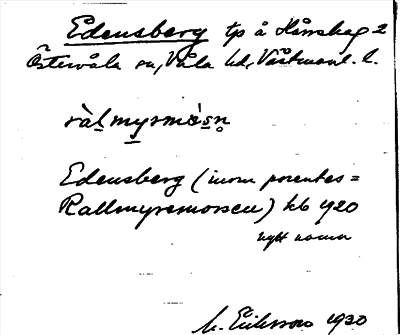 Edensberg tp å Hårskog 2
Östervåla sn, Våla hd, Västmanl. l.
ràl̠myrmòsn̥
Edensberg (inom parentes =
Rallmyremossen) kb 1920
nytt namn
M. Eriksson 1930